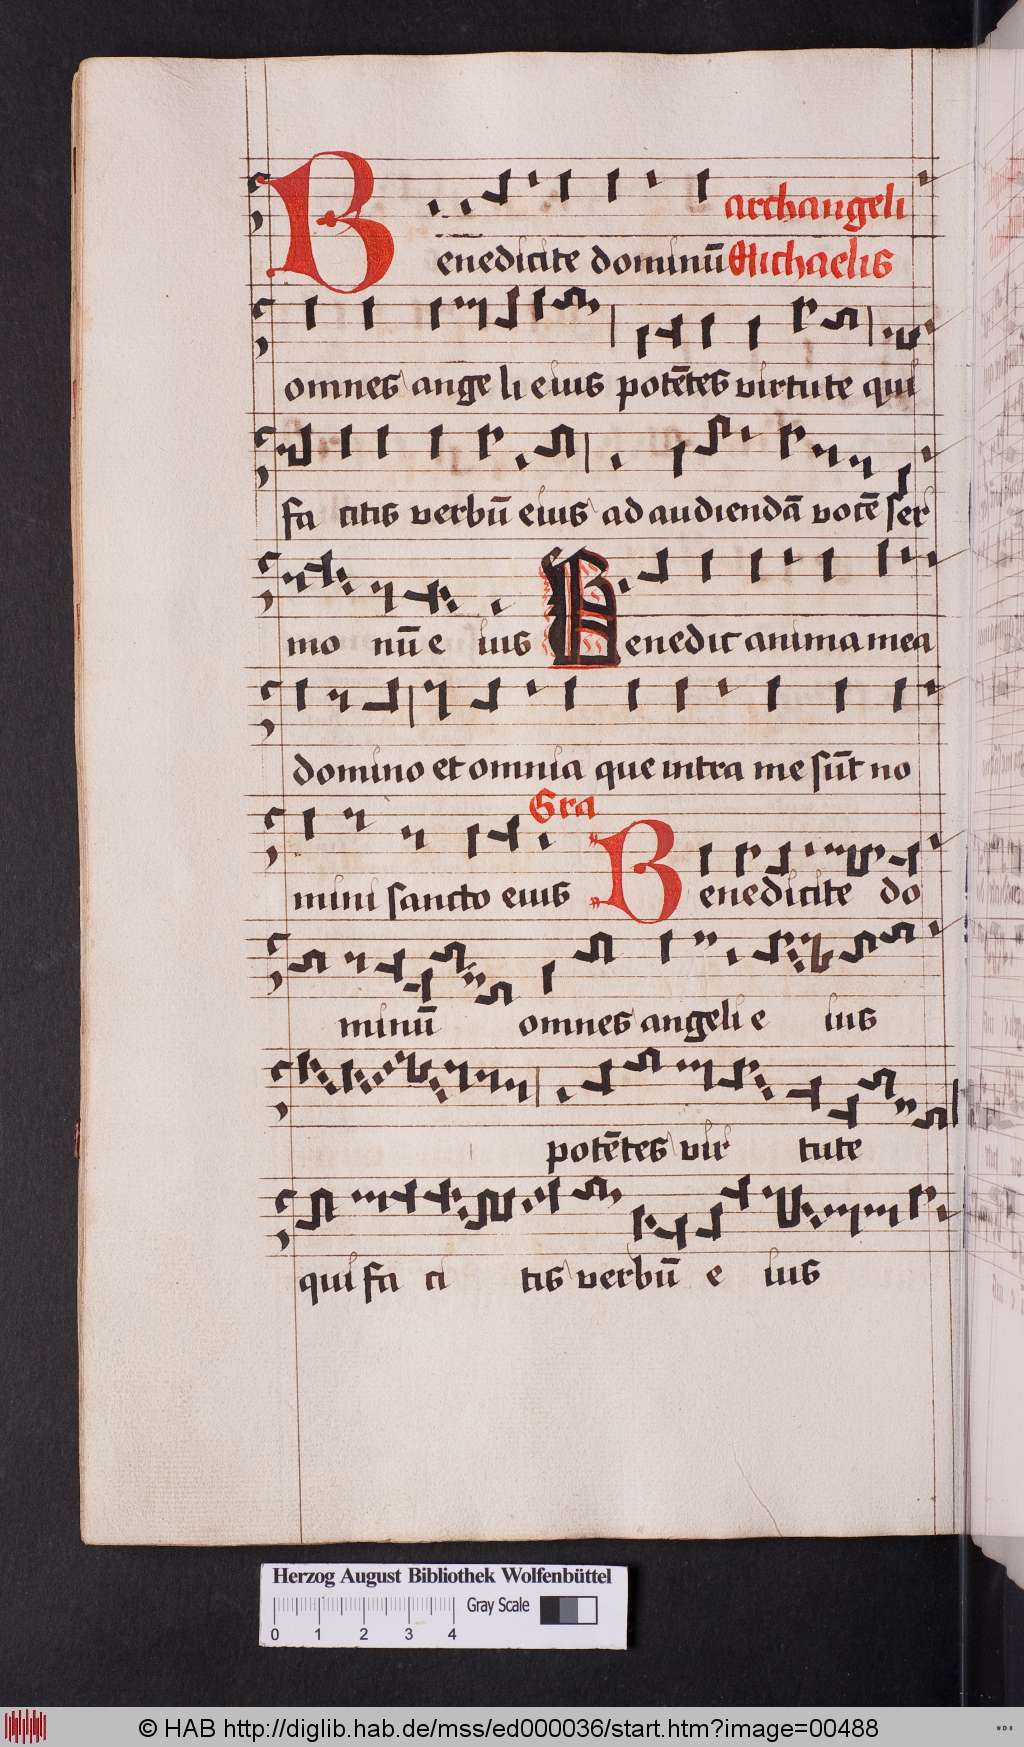 archangeli
Benedicite dominū Michaelis
omnes angeli eius potētes virtute qui
facitis verbū eius ad audiendā vocē ser
monū eius Benedic anima mea
domino et omnia que intra me sūt no
Gra
mini sancto eius Benedicite do
minū omnes angeli eius
potētes virtute
qui facitis verbū eius
Herzog August Bibliothek Wolfenbüttel
Gray Scale
0 1 2 3 4
© HAB http://diglib.hab.de/mss/ed000036/start.htm?image=00488